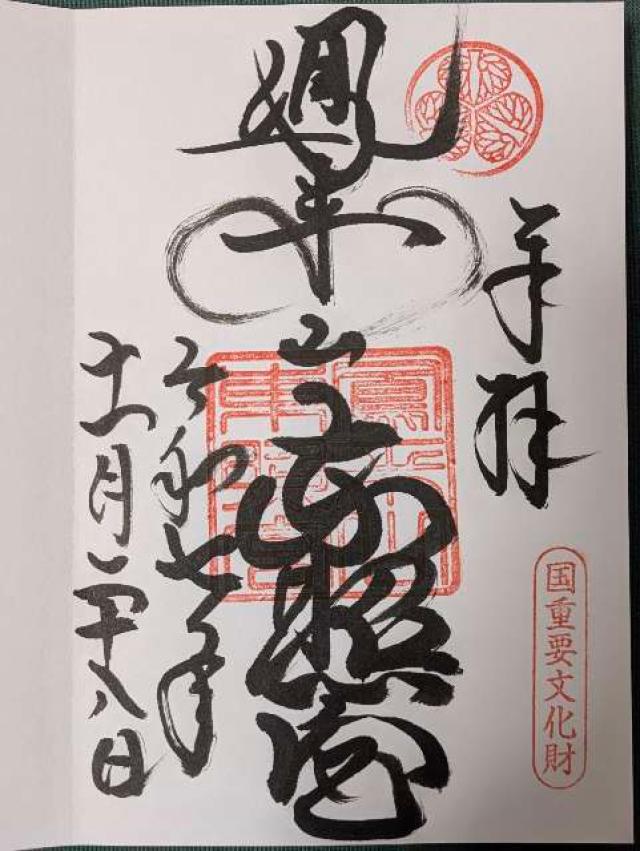 奉拝
国重要文化財
鳳来山東照宮
令和七年
十一月二十八日